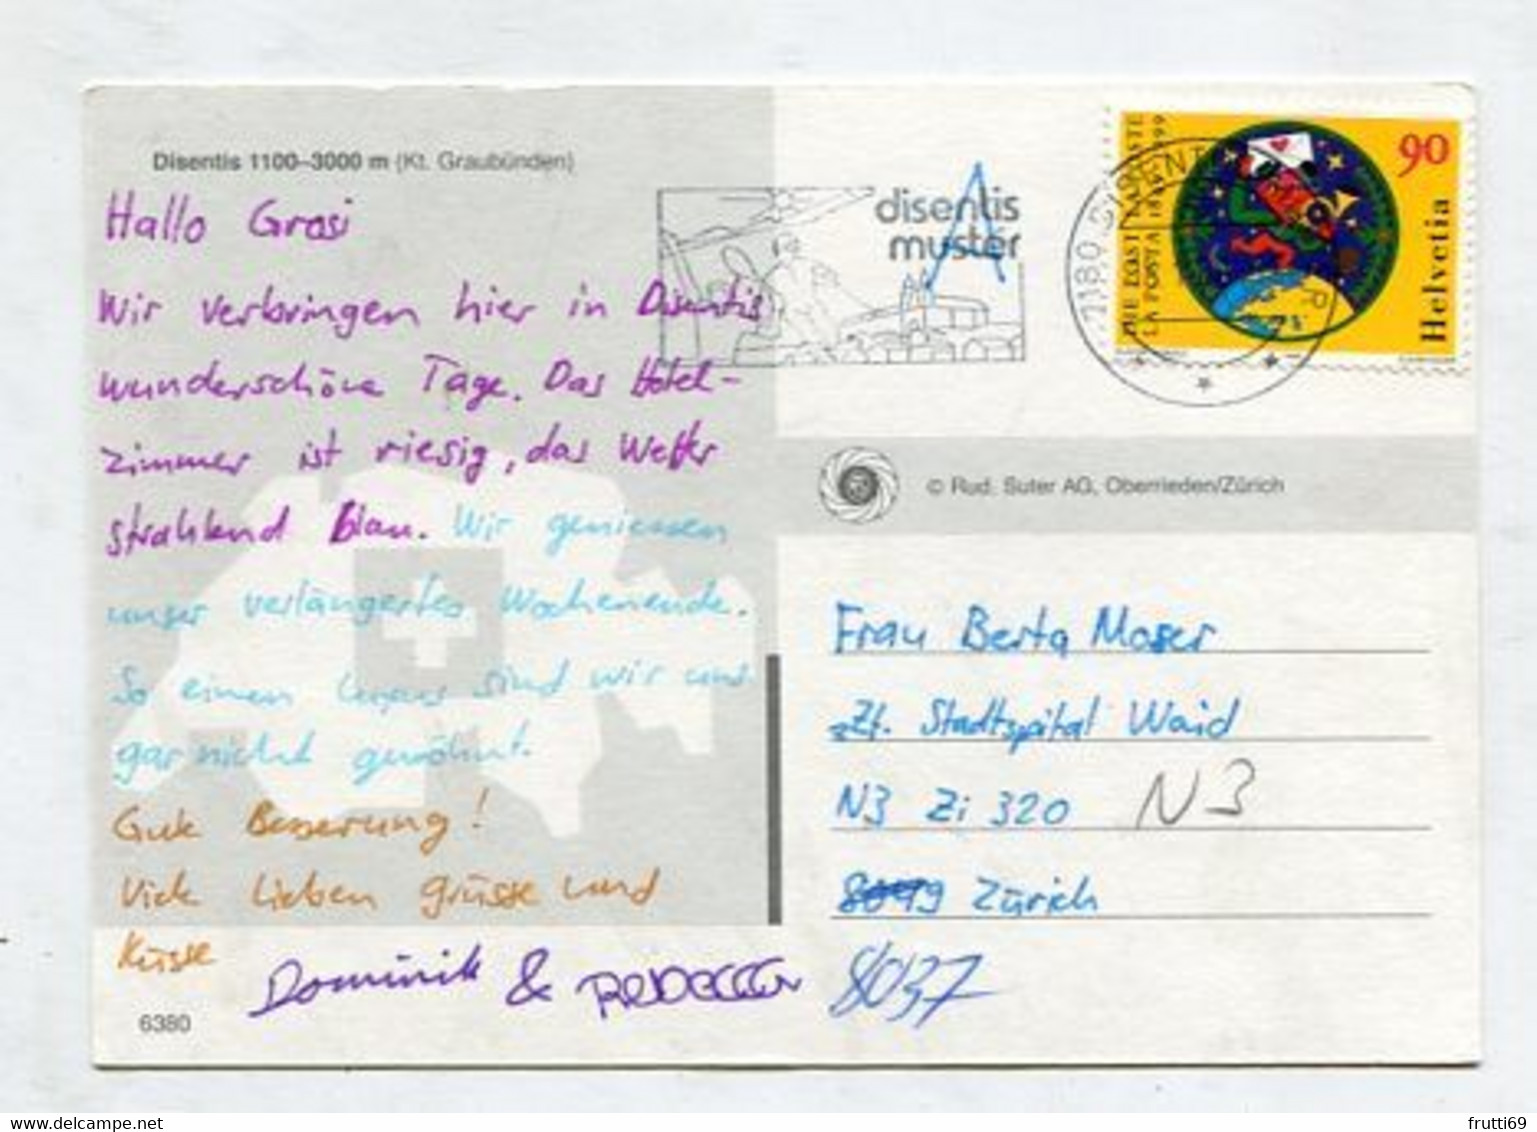 Disentis 1100–3000 m (Kt. Graubünden)
Hallo Grosi
Wir verbringen hier in Disentis
wunderschöne Tage. Das Hotel-
zimmer ist riesig, das Wetter
strahlend blau. Wir geniessen
unser verlängertes Wochenende.
So einen Luxus sind wir uns
gar nicht gewöhnt.
Gute Besserung!
Viele lieben Grüsse und
Küsse
Dominik & Rebecca
6380
disentis
muster
A
7180 DISENTIS
DIE POST LA POSTE
LA POSTA 1849–1999
90
Helvetia
© Rud. Suter AG, Oberrieden/Zürich
Frau Berta Moser
Zt. Stadtspital Waid
N3 Zi 320 N3
8049 Zürich
8037
delcampe.net
frutti69